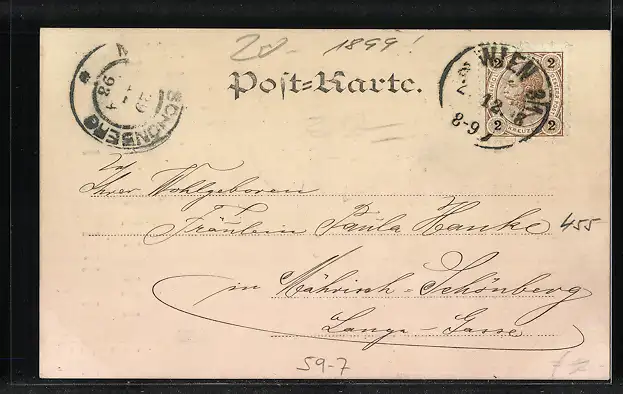 20- 1899!
Post-Karte.
WIEN
2 2
2 KREUZER 2
8-9
SCHÖNBERG
98
Ihrer Wohlgeboren
Fräulein Paula Hanke 455
in Mährisch-Schönberg
Lange-Gasse
59-7